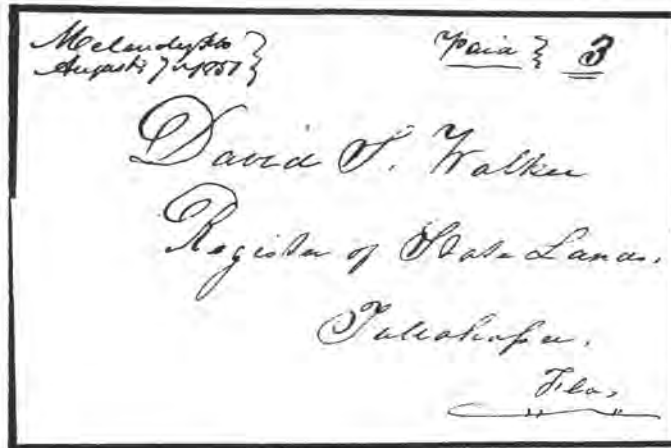 Melendez Flo } Paid } 3
August 7th 1851 }
David S. Walker
Register of State Lands.
Tallahassee.
Flo,